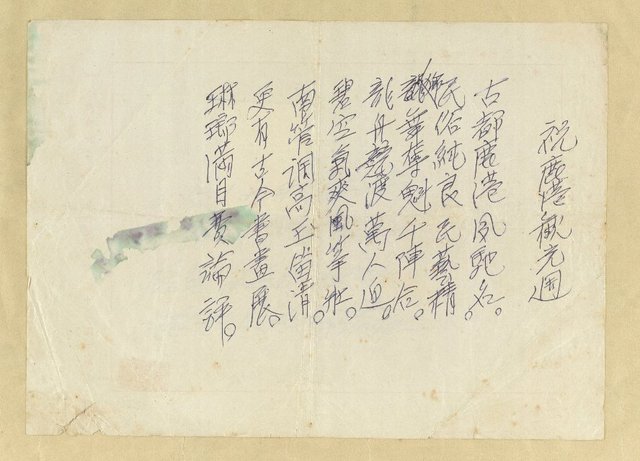 祝鹿港觀光週
古都鹿港夙馳名。
民俗純良民藝精。
獅華奪魁千陣合。
龍舟競渡萬人迎。
碧空氣爽風箏壯。
南管調高玉笛清。
更有古今書畫展。
琳瑯滿目費論評。